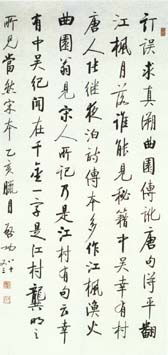 訂誤求真溯曲園傳訛唐句得平翻
江楓月落誰能見秘籍中吳幸有村
唐人張繼夜泊詩傳本多作江楓漁火
曲園翁見宋人所記乃是江村有句云幸
有中吳紀聞在千金一字是江村龔明之
所見當然宋本乙亥臘月启功